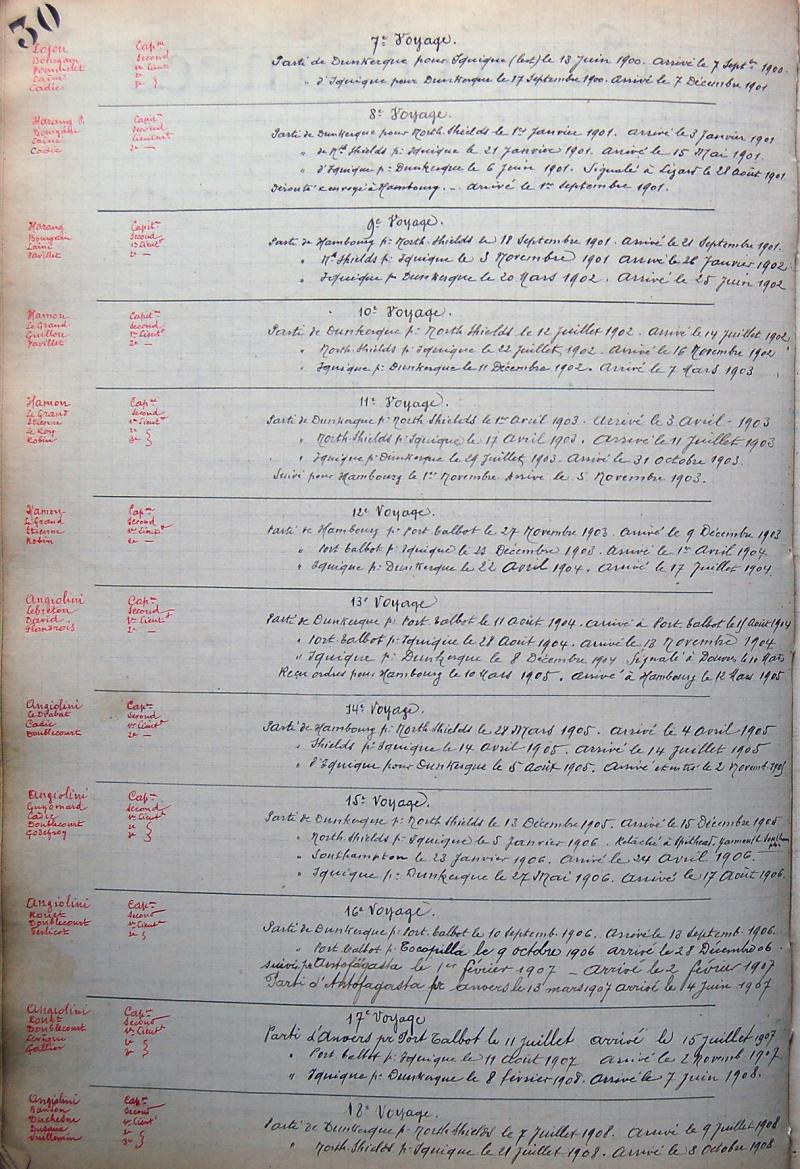 30
7e Voyage.
Lofou Capne
Bourgain Second
Pommelet 1r Lieutt
Lainé 2e
Cadic 3e
Parti de Dunkerque pour Iquique (lest) le 13 Juin 1900. Arrivé le 7 Septbre 1900.
" d'Iquique pour Dunkerque le 17 Septembre 1900. Arrivé le 7 Décembre 1901
8e Voyage.
Harang P. Capitne
Bourgain Second
Lainé Lieutent
Cadic 2e —
Parti de Dunkerque pour North Shields le 1er Janvier 1901. arrivé le 3 Janvier 1901
" de Nth Shields p: Iquique le 21 Janvier 1901. Arrivé le 15 Mai 1901.
" d'Iquique p: Dunkerque le 6 Juin 1901. Signalé à Lizard le 28 Août 1901
Dérouté & envoyé à Hambourg. - Arrivé le 1er Septembre 1901.
9e Voyage.
Harang Capitne
Bourgain Second
Lainé 1r Lieutt
Pavillet 2e —
Parti de Hambourg p: North Shields le 18 Septembre 1901. Arrivé le 21 Septembre 1901.
" Nth Shields p: Iquique le 3 Novembre 1901 Arrivé le 26 Janvier 1902.
" Iquique p: Dunkerque le 20 Mars 1902. Arrivé le 25 Juin 1902
10e Voyage.
Hamon Capitne
Le Grand Second
Guillou 1r Lieutt
Pavillet 2e —
Parti de Dunkerque p: North Shields le 12 Juillet 1902. Arrivé le 14 Juillet 1902
" North Shields p: Iquique le 22 Juillet 1902. Arrivé le 16 Novembre 1902
" Iquique p: Dunkerque le 11 Décembre 1902. Arrivé le 7 Mars 1903
11e Voyage.
Hamon Capne
Le Grand Second
Etienne 1r Lieutt
Le Roy 2e
Robin 3e
Parti de Dunkerque p: North Shields le 1er Avril 1903. Arrivé le 3 Avril 1903
" North Shields p: Iquique le 17 Avril 1903. Arrivé le 11 Juillet 1903
" Iquique p: Dunkerque le 29 Juillet 1903. Arrivé le 31 Octobre 1903.
Suivi pour Hambourg le 1er Novembre Arrivé le 5 Novembre 1903.
12e Voyage.
Hamon Capne
Le Grand Second
Etienne 1r Lieutt
Robin 2e —
Parti de Hambourg p: Port Talbot le 27 Novembre 1903. Arrivé le 9 Décembre 1903
" Port Talbot p: Iquique le 23 Décembre 1903. Arrivé le 1er Avril 1904
" Iquique p: Dunkerque le 22 Avril 1904. Arrivé le 17 Juillet 1904.
13e Voyage
Angiolini Capne
Lebreton Second
David 1r Lieutt
2e —
Parti de Dunkerque p: Port Talbot le 11 Août 1904. arrivé à Port Talbot le 15 Août 1904
" Port Talbot p: Iquique le 28 Août 1904. Arrivé le 13 Novembre 1904
" Iquique p: Dunkerque le 8 Décembre 1904 Signalé à Douvres le 10 Mars
Reçu ordres pour Hambourg le 10 Mars 1905. Arrivé à Hambourg le 12 Mars 1905
14e Voyage.
Angiolini Capne
Second
Cadic 1r Lieutt
Doublecourt 2e —
Parti de Hambourg p: North Shields le 28 Mars 1905. Arrivé le 4 Avril 1905
" Shields p: Iquique le 14 Avril 1905. Arrivé le 14 Juillet 1905
" d'Iquique pour Dunkerque le 5 Août 1905. Arrivé et entré le 2 Novemb. 1905
15e Voyage.
Angiolini Capne
Guyomard Second
Cadic 1r Lieutt
Doublecourt 2e
Godefroy 3e
Parti de Dunkerque p: North Shields le 13 Décembre 1905. Arrivé le 15 Décembre 1905
" North Shields p: Iquique le 5 Janvier 1906. Relaché à Spithead, Yarmouth Southampton
" Southampton le 23 Janvier 1906. Arrivé le 24 Avril 1906.
" Iquique p: Dunkerque le 27 Mai 1906. Arrivé le 17 Août 1906.
16e Voyage.
Angiolini Capne
Rouzet Second
Doublecourt 1r Lieutt
2e
Parti de Dunkerque p: Port Talbot le 10 Septemb. 1906. Arrivé le 13 Septemb. 1906.
" Port Talbot p: Tocopilla le 9 octobre 1906 arrivé le 28 Décemb 06.
suivi pr Antofagasta le 1er février 1907 — Arrivé le 2 février 1907
Parti d'Antofagasta pr anvers le 13 mars 1907 arrivé le 4 Juin 1907
17e Voyage
Angiolini Capne
Rouzet Second
Doublecourt 1r Lieutt
2e
3e
Parti d'Anvers pr Port Talbot le 11 juillet arrivé le 15 juillet 1907
" Port Talbot p: Iquique le 11 Août 1907 Arrivé le 2 Novemb 1907
" Iquique p: Dunkerque le 8 février 1908. Arrivé le 7 Juin 1908.
18e Voyage.
Angiolini Capne
Second
Duchesne 1r Lieutt
2e
Vuillemin 3e
Parti de Dunkerque p: North Shields le 7 Juillet 1908. Arrivé le 9 Juillet 1908
" North Shields p: Iquique le 21 Juillet 1908. Arrivé le 8 Octobre 1908